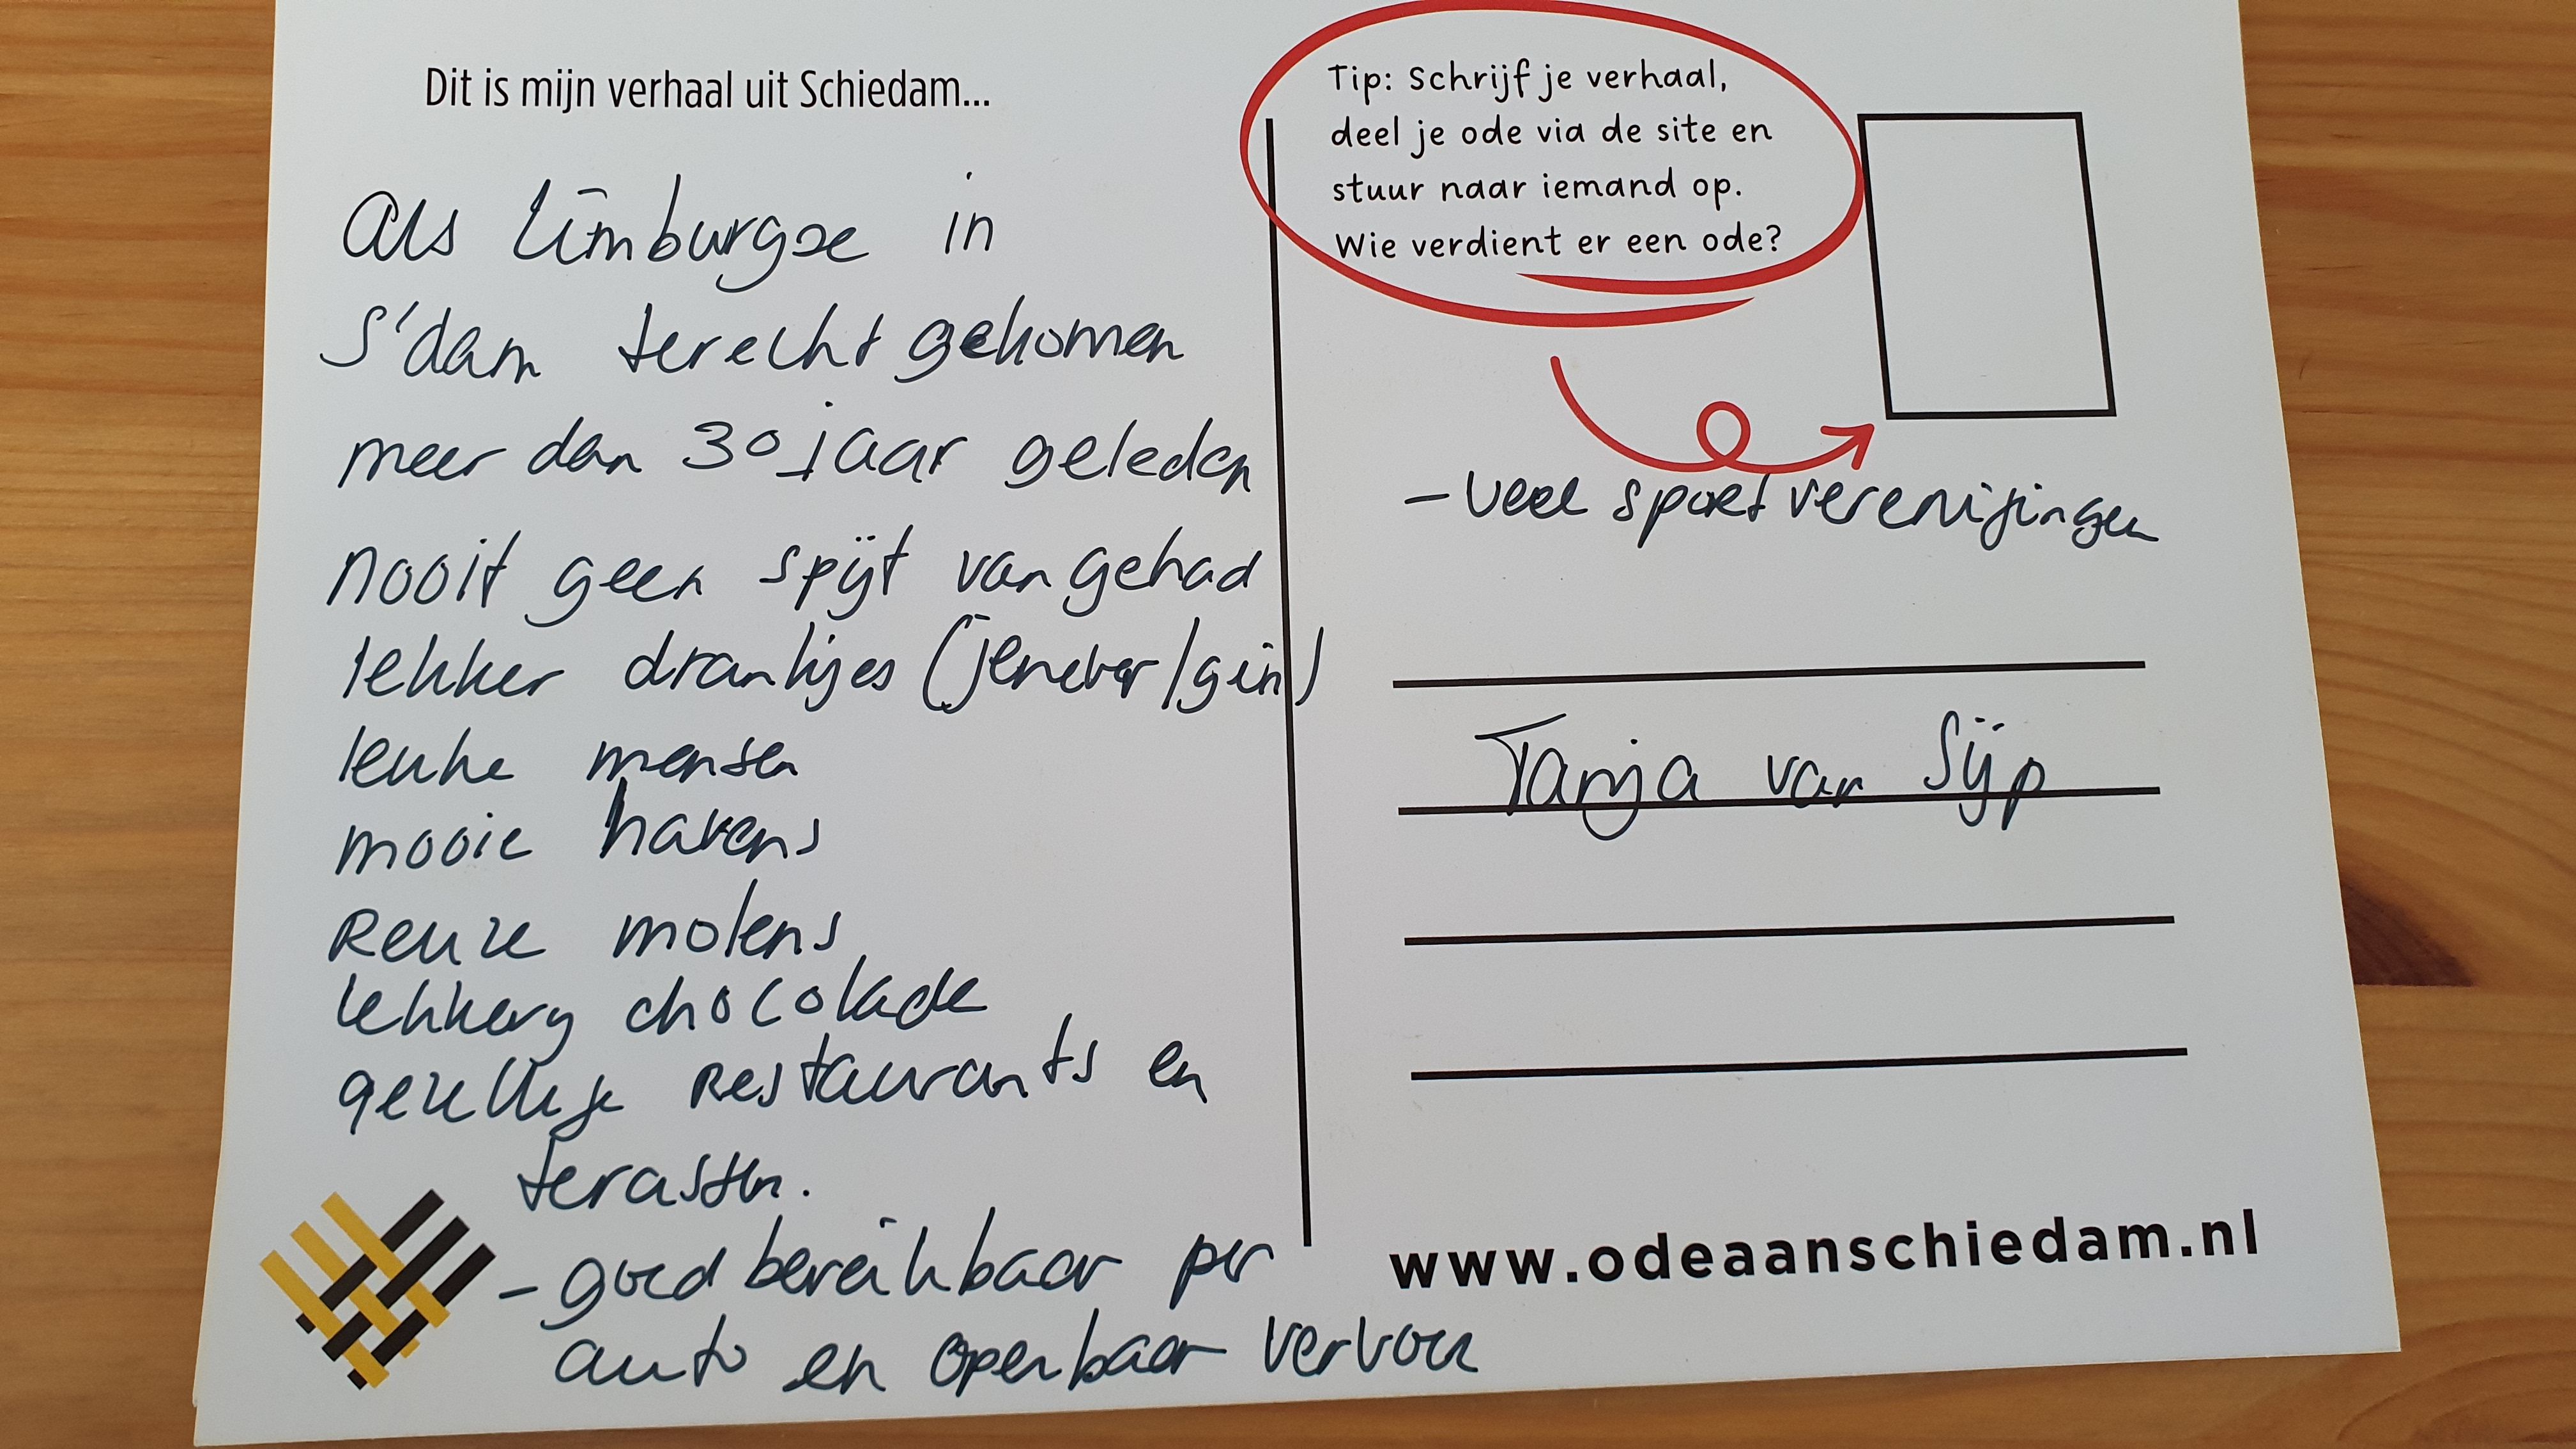 Dit is mijn verhaal uit Schiedam...
Als Limburgse in
S'dam terecht gekomen
meer dan 30 jaar geleden
nooit geen spijt van gehad
lekker drankjes (jenever/gin)
leuke mensen
mooie havens
Reuze molens
lekkery chocolade
gezellige Restaurants en
terassen.
- goed bereikbaar per
auto en openbaar vervoer
Tip: Schrijf je verhaal,
deel je ode via de site en
stuur naar iemand op.
Wie verdient er een ode?
- veel sportverenigingen
Tanja van Sijp
www.odeaanschiedam.nl